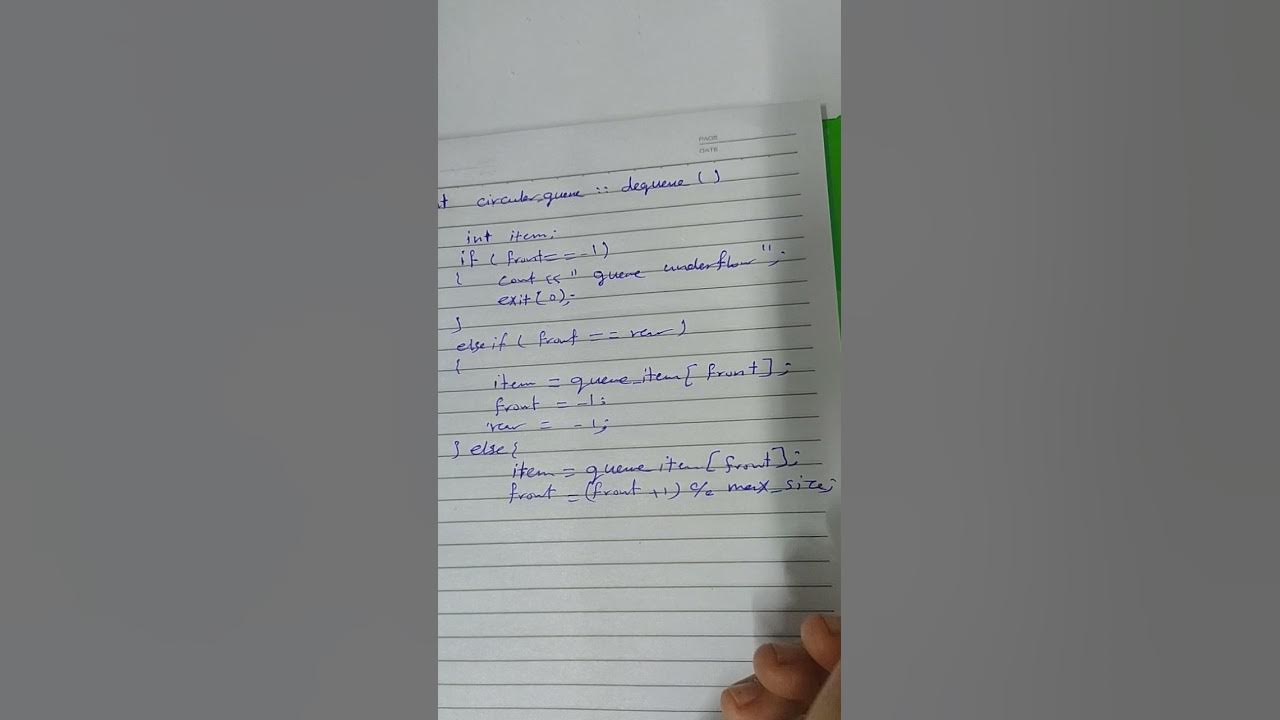 PAGE
DATE
nt circular_queue :: dequeue ( )
int item;
if ( front == -1)
{ cout << " queue underflow ";
exit(0);
}
else if ( front == rear )
{
item = queue_item[ front ];
front = -1;
rear = -1;
} else {
item = queue_item [ front ];
front = (front +1) % max_size;